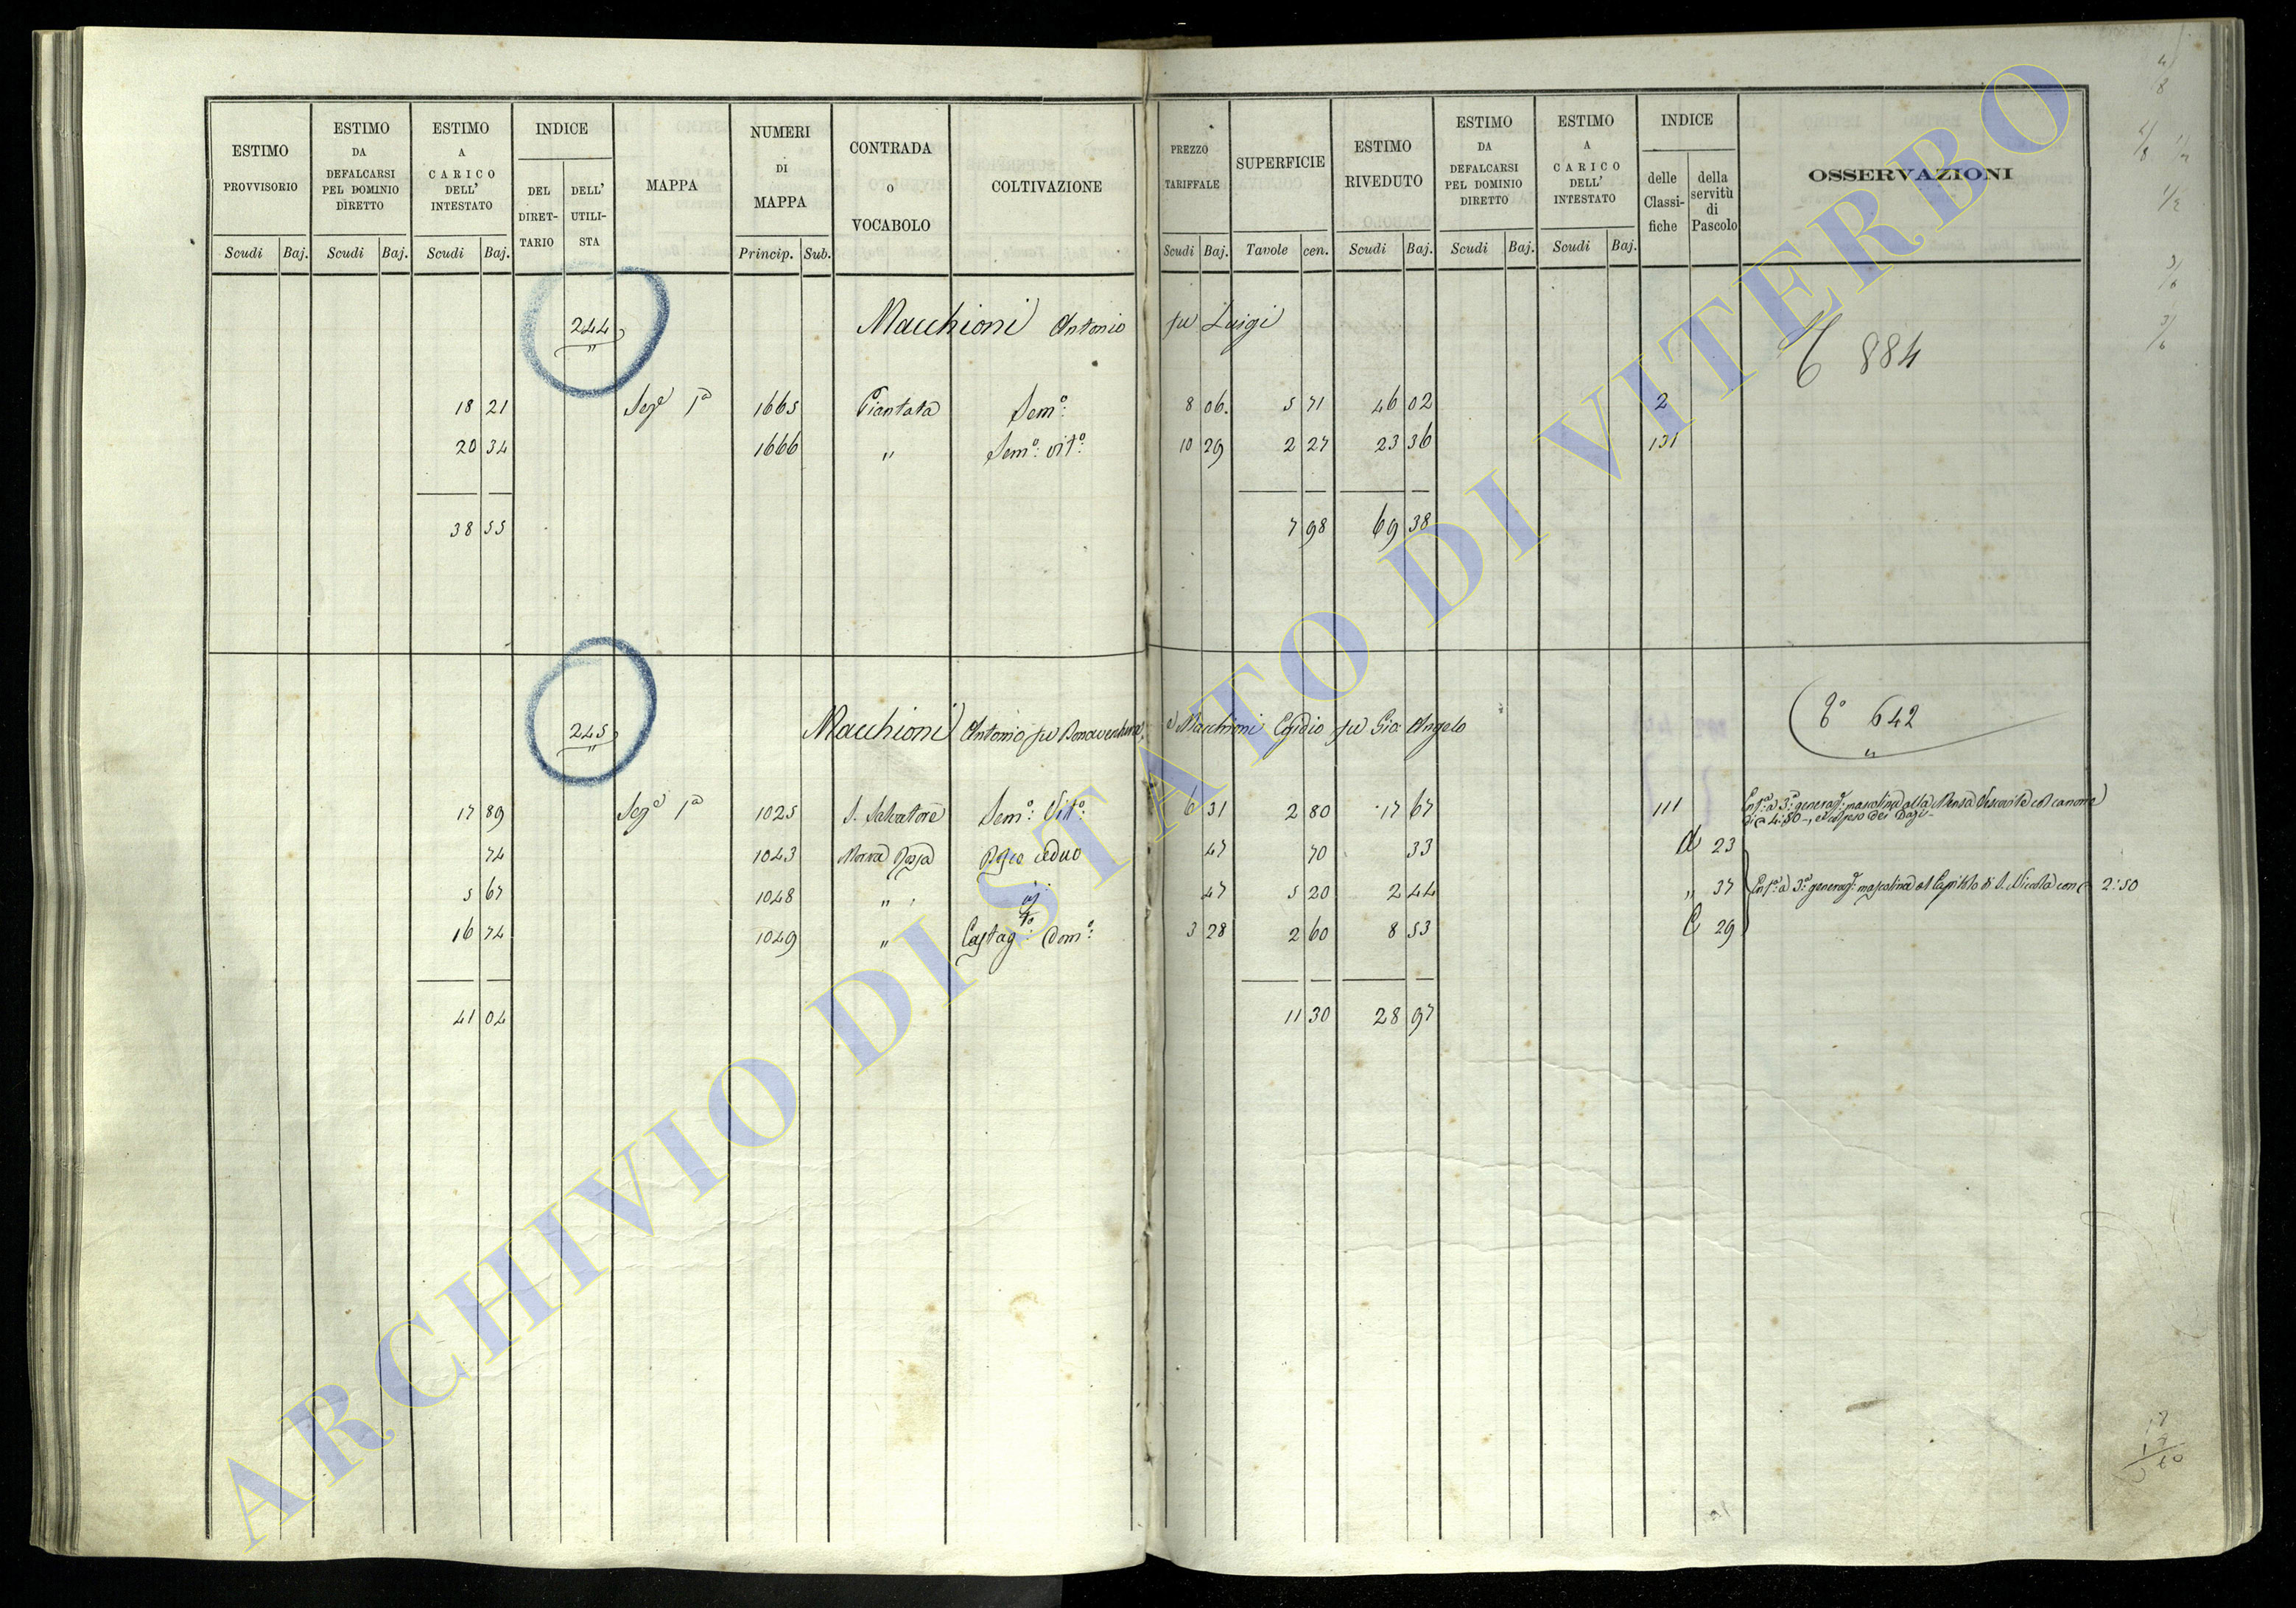 ESTIMO PROVVISORIO
ESTIMO DA DEFALCARSI PEL DOMINIO DIRETTO
ESTIMO A CARICO DELL' INTESTATO
INDICE
DEL DIRET-TARIO
DELL' UTILI-STA
MAPPA
NUMERI DI MAPPA
CONTRADA o VOCABOLO
COLTIVAZIONE
PREZZO TARIFFALE
SUPERFICIE
ESTIMO RIVEDUTO
ESTIMO DA DEFALCARSI PEL DOMINIO DIRETTO
ESTIMO A CARICO DELL' INTESTATO
INDICE
delle Classi-fiche
della servitù di Pascolo
OSSERVAZIONI
Scudi Baj. Scudi Baj. Scudi Baj. Princip. Sub. Scudi Baj. Tavole cen. Scudi Baj. Scudi Baj. Scudi Baj.
244 Macchioni Antonio fu Luigi
" 884
18 21 Sez.e 1a 1665 Piantata Sem.o: 8 06. 5 71 46 02 2
20 34 1666 " Sem.o: vit.o: 10 29 2 27 23 36 131
38 55 7 98 69 38
245 Macchioni Antonio fu Bonaventura, e Macchioni Egidio fu Gio. Angelo 642
" "
17 89 Sez.e 1a 1025 S. Salvatore Sem.o: Vit.o: 6 31 2 80 17 67 111 Enf.a a 3.a generaz.e mascolina alla Mensa Vescovile col canone
di 4:80, e col peso dei Dazi
74 1043 ceduo 47 70 33 d 23
5 67 1048 " " 47 5 20 2 44 " 37 Enf.a a 3.a generaz.e mascolina al Capitolo di S. Nicola con 2:50
16 74 1049 " Castag.to: Dom.o: 3 28 2 60 8 53 C 29
41 04 11 30 28 97
ARCHIVIO DI STATO DI VITERBO